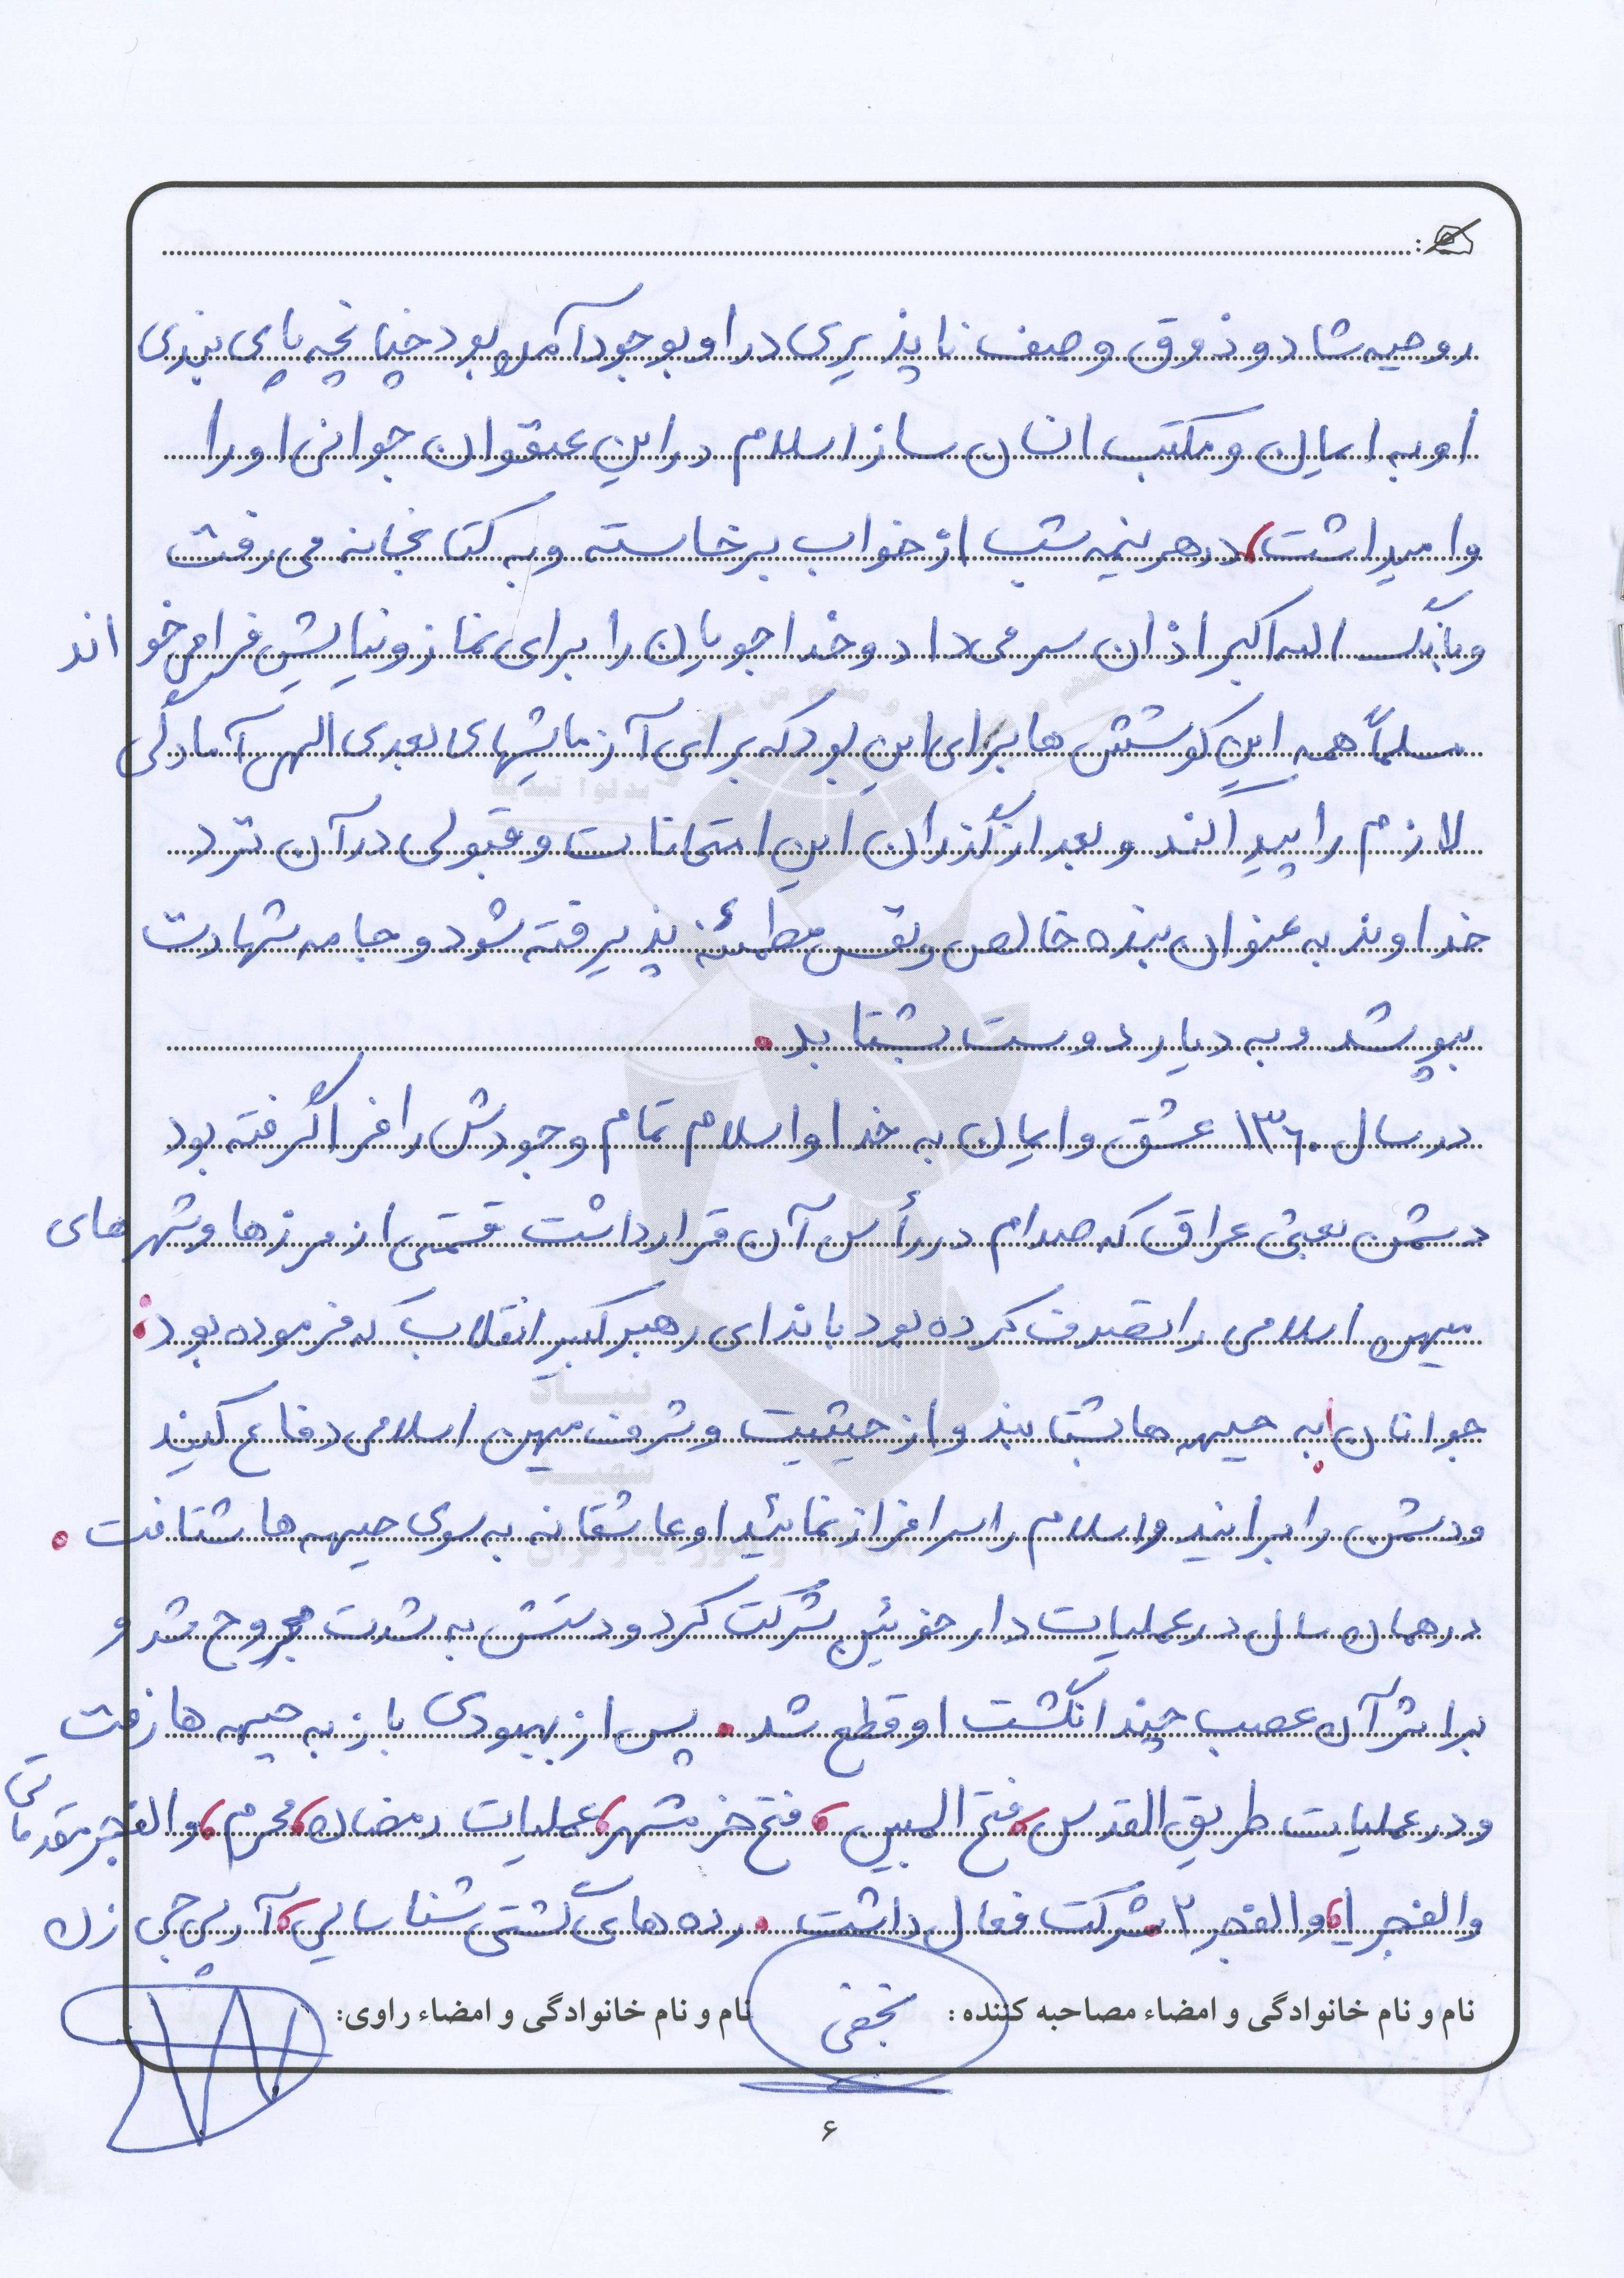 روحیه شاد و ذوق وصف ناپذیری در او بوجود آمده بود چنانچه پای بندی
او به ایمان و مکتب انسان ساز اسلام در این عنقوان جوانی او را
وا میداشت، در هر نیمه شب از خواب برخاسته و به کتابخانه می رفت
و بانگ الله اکبر اذان سر می داد و خداجویان را برای نماز و نیایش فرا می خواند
مسلماً همه این کوشش ها برای این بود که برای آزمایشهای بعدی الهی آمادگی
لازم را پیدا کند و بعد از گذران این امتحانات و قبولی در آن نزد
خداوند به عنوان بنده خالص و نفس مطمئنه پذیرفته شود و جامه شهادت
بپوشد و به دیار دوست بشتابد.
در سال ۱۳۶۰ عشق و ایمان به خدا و اسلام تمام وجودش را فرا گرفته بود
دشمن بعثی عراق که صدام در رأس آن قرار داشت قسمتی از مرزها و شهرهای
میهن اسلامی را تصرف کرده بود با ندای رهبر کبیر انقلاب که فرموده بود:
جوانان! به جبهه ها بشتابید و از حیثیت و شرف میهن اسلامی دفاع کنید
و دشمن را برانید و اسلام را سرافراز نمائید او عاشقانه به سوی جبهه ها شتافت.
در همان سال در عملیات دارخوئین شرکت کرد و دستش به شدت مجروح شد و
بر اثر آن عصب چند انگشت او قطع شد. پس از بهبودی باز به جبهه ها رفت
و در عملیات طریق القدس، فتح المبین، فتح خرمشهر، عملیات رمضان، محرم، والفجر مقدماتی
والفجر ۱، والفجر ۲ شرکت فعال داشت. رده های گشتی شناسایی، آرپی جی زن
نام و نام خانوادگی و امضاء مصاحبه کننده: نجفی نام و نام خانوادگی و امضاء راوی:
۶